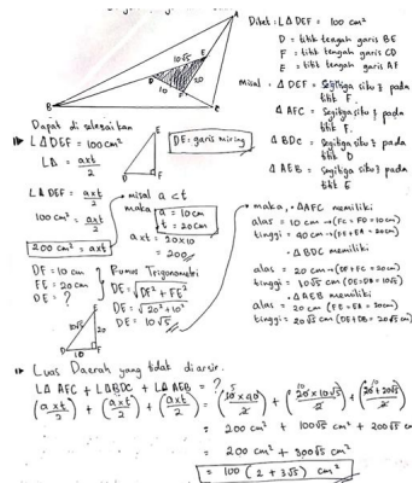 Diket: L∆ DEF = 100 cm²
D = titik tengah garis BE
F = titik tengah garis CD
E = titik tengah garis AF
misal : ∆ DEF = Segitiga siku² pada titik F.
∆ AFC = Segitiga siku² pada titik F.
∆ BDC = Segitiga siku² pada titik D
∆ AEB = Segitiga siku² pada titik E
A
B
C
D
E
F
10√5
20
10
Dapat di selesaikan
L∆DEF = 100 cm²
L∆ = axt/2
E
D
F
DE: garis miring
L∆ DEF = axt/2
100 cm² = axt/2
200 cm² = axt
misal a < t
maka a = 10 cm
t = 20 cm
axt = 20x10
= 200
DF = 10 cm
FE = 20 cm
DE = ?
Rumus Trigonometri
DE = √DF² + FE²
DE = √20² + 10²
DE = 10√5
10√5
20
10
D
F
maka, • ∆AFC memiliki
alas = 10 cm → (FC = FD = 10 cm)
tinggi = 40 cm → (FE + EA = 40 cm)
• ∆ BDC memiliki
alas = 20 cm → (DF + FC = 20 cm)
tinggi = 10√5 cm (DE = DB = 10√5)
• ∆ AEB memiliki
alas = 20 cm (FE = EA = 20 cm)
tinggi = 20√5 cm (DE + DB = 20√5 cm)
Luas Daerah yang tidak diarsir.
L∆ AFC + L∆BDC + L∆ AEB = ?
(axt/2) + (axt/2) + (axt/2) = (10 x 40/2) + (20 x 10√5/2) + (20 x 20√5/2)
= 200 cm² + 100√5 cm² + 200√5 cm
= 200 cm² + 300√5 cm²
= 100 (2 + 3√5) cm²